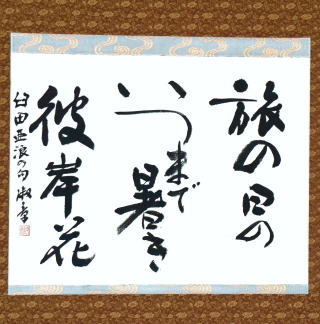 旅の日の
いつまで暑き
彼岸花
臼田亜浪の句 淑章